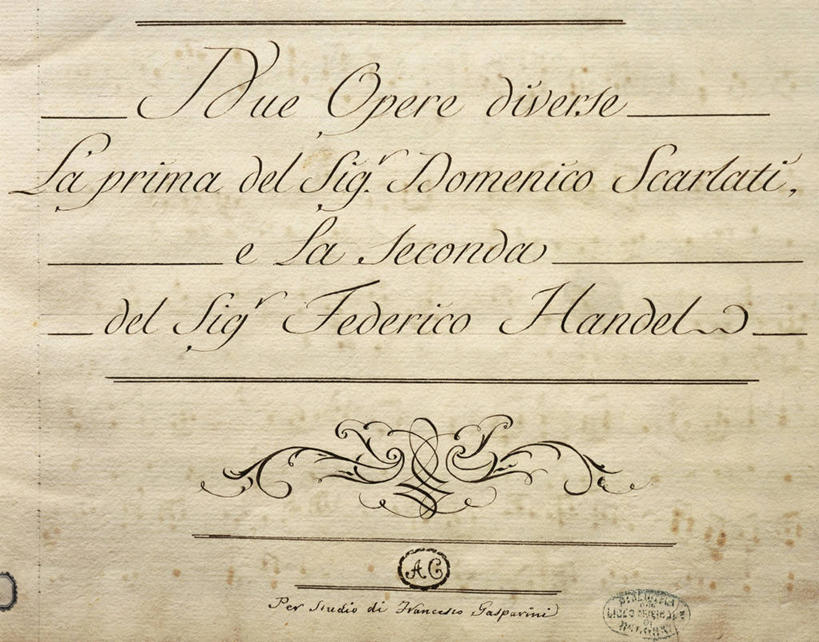 Due Opere diverse
La prima del Sig.r Domenico Scarlati,
e La Seconda
del Sigr Federico Handel
AC
Per Studio di Francesco Gasparini